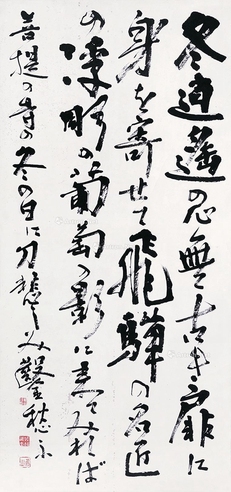 冬逍遥の 古き扉に
身を寄せて飛騨の名匠
の浮彫の葡萄の影に来てみれば
菩提の寺の冬の日に刀悲しみ鑿愁ふ